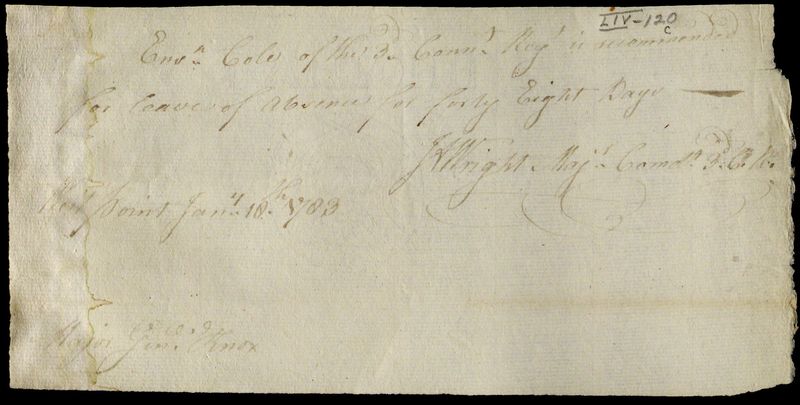 LIV-120
c
Ensn. Cole of the 3d. Connt. Regt. is recommended
for leave of absence for forty Eight Days
JA Wright Majr. Comdt. 3d. C. Rt.
West point Jany. 18th. 1783
Major Genl. Knox